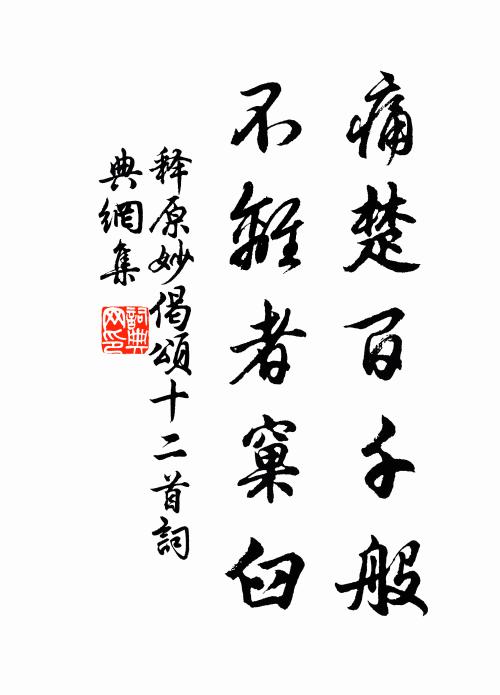 痛楚百千般
不離者窠臼
释原妙偈頌十二首詞
典網集
詞典网印